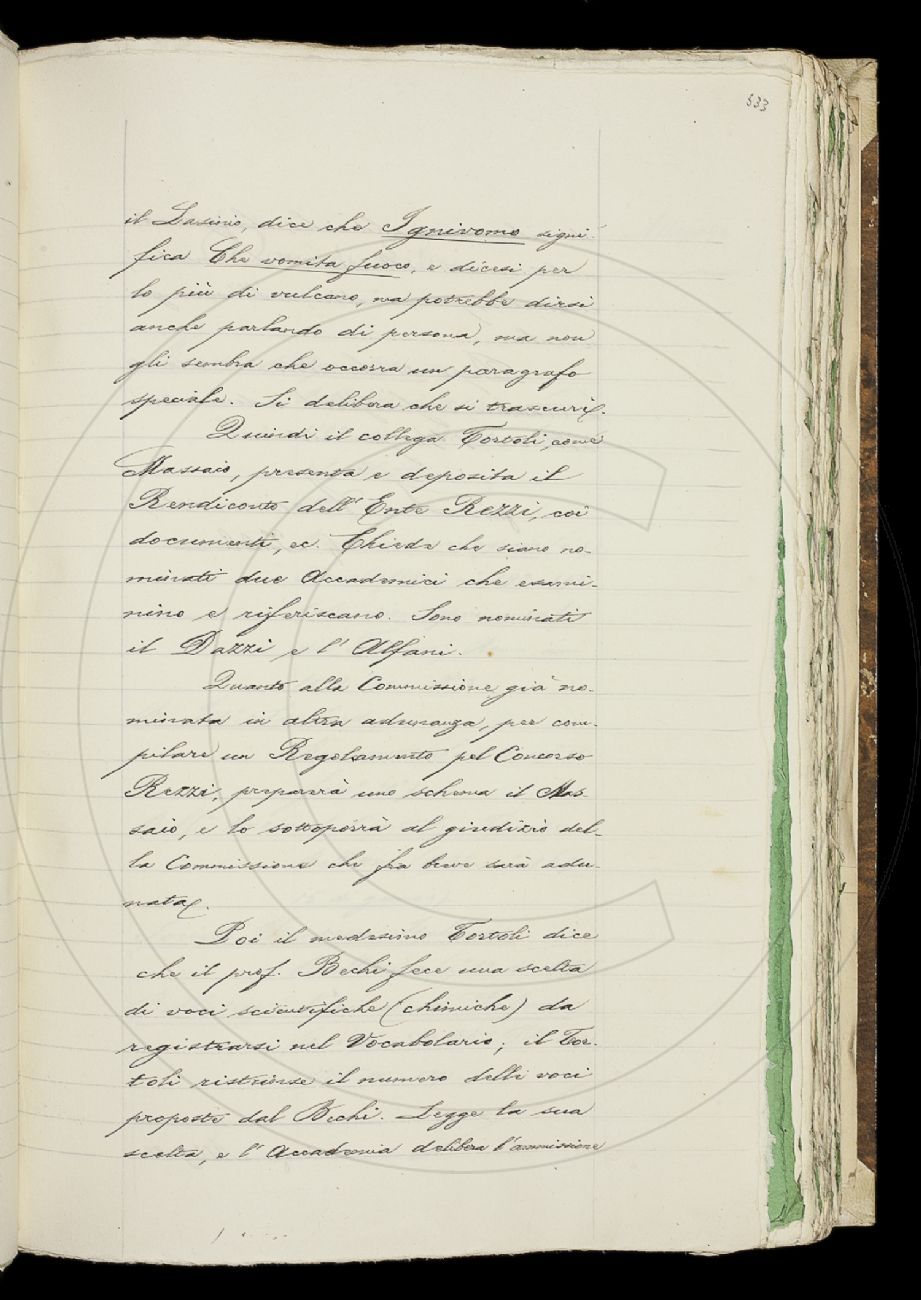 533
il Lasinio, dice che Ignivomo signi-
fica Che vomita fuoco, e dicesi per
lo più di vulcano, ma potrebbe dirsi
anche parlando di persona, ma non
gli sembra che occorra un paragrafo
speciale. Si delibera che si trascuri.
Quindi il collega Tortoli, come
Massaio, presenta e deposita il
Rendiconto dell' Ente Rezzi, coi
documenti, ec. Chiede che siano no-
minati due Accademici che esami-
nino e riferiscano. Sono nominati
il Dazzi e l' Alfani.
Quanto alla Commissione già no-
minata in altra adunanza, per com-
pilare un Regolamento pel Concorso
Rezzi, preparerà uno schema il Mas-
saio, e lo sottoporrà al giudizio del-
la Commissione che fra breve sarà adu-
nata.
Poi il medesimo Tortoli dice
che il prof. Bechi fece una scelta
di voci scientifiche (chimiche) da
registrarsi nel Vocabolario; il Tor-
toli ristrinse il numero delle voci
proposte dal Bechi. Legge la sua
scelta, e l' Accademia delibera l'ammissione